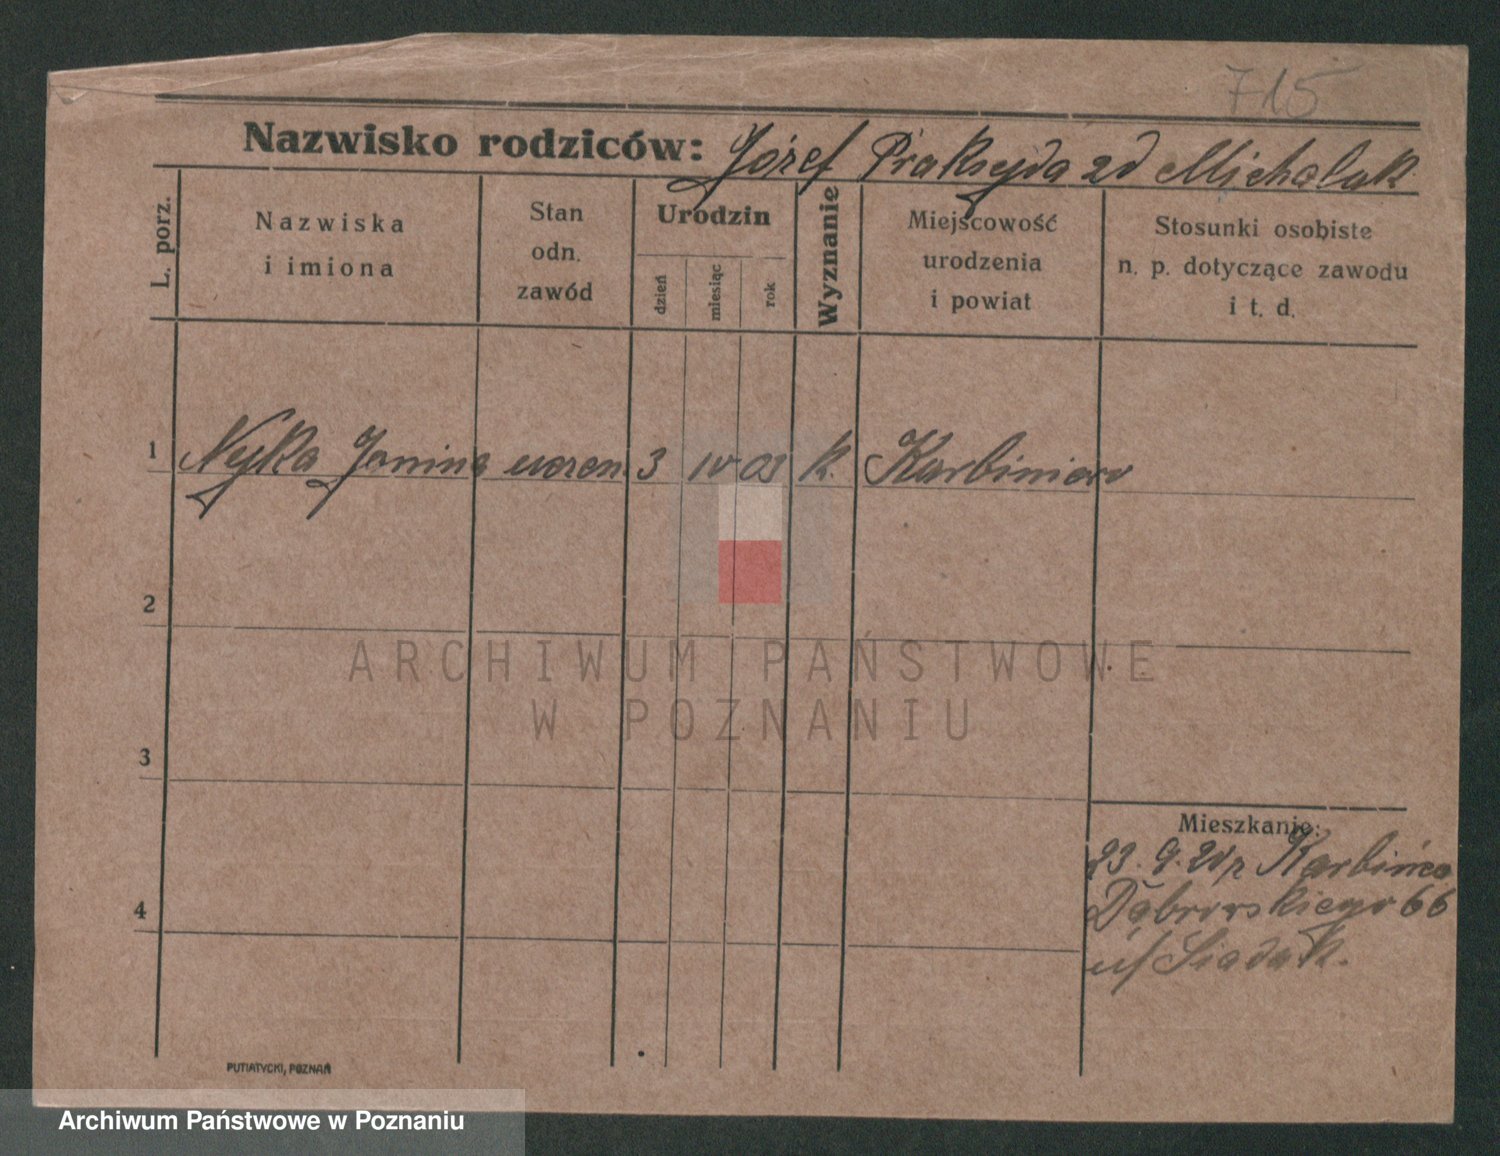 715
Nazwisko rodziców: Józef Praksyda zd Michalak
L. porz.
Nazwiska
i imiona
Stan
odn.
zawód
Urodzin
dzień
miesiąc
rok
Wyznanie
Miejscowość
urodzenia
i powiat
Stosunki osobiste
n. p. dotyczące zawodu
i t. d.
1 Nyka Janina uczen 3 IV 03 k. Karbiniow
2
ARCHIWUM PAŃSTWOWE
W POZNANIU
3
Mieszkanie:
23. 9. Karbińca
4
Dąbrowskiego 66
u/ Siadak.
PUTIATYCKI, POZNAŃ
Archiwum Państwowe w Poznaniu